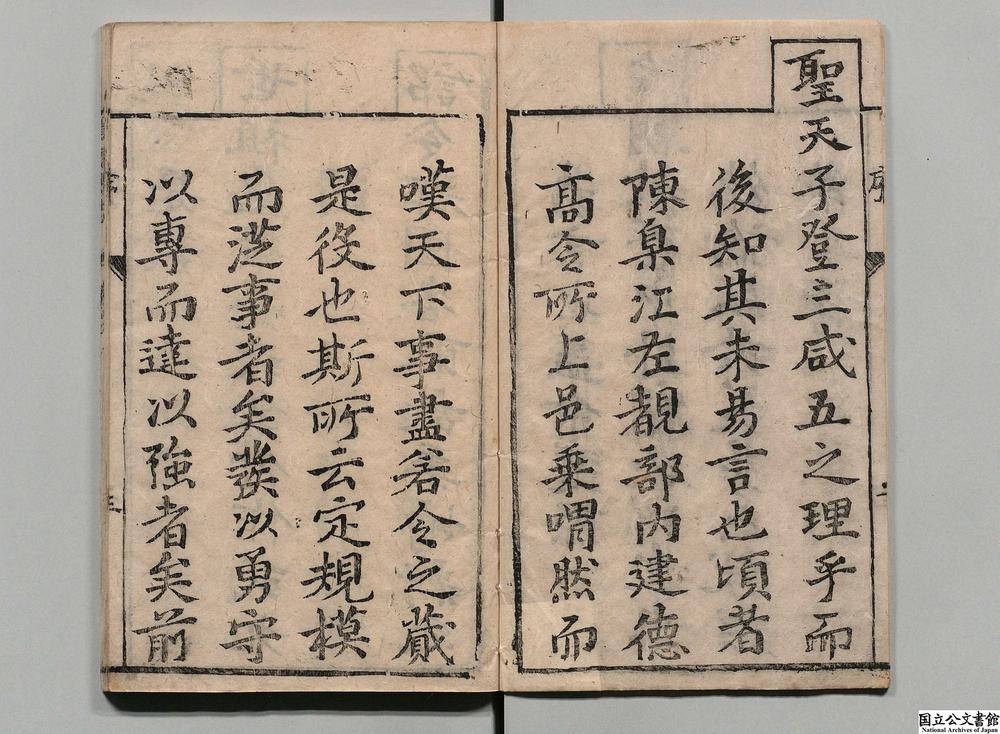 聖天子登三咸五之理乎而
後知其未昜言也頃者
陳臬江左覩部內建德
髙令所上邑乗喟然而
嘆天下事盡若令之蕆
是役也斯所云定規模
而涖事者矣發以勇守
以專而達以強者矣前
序
国立公文書館
National Archives of Japan